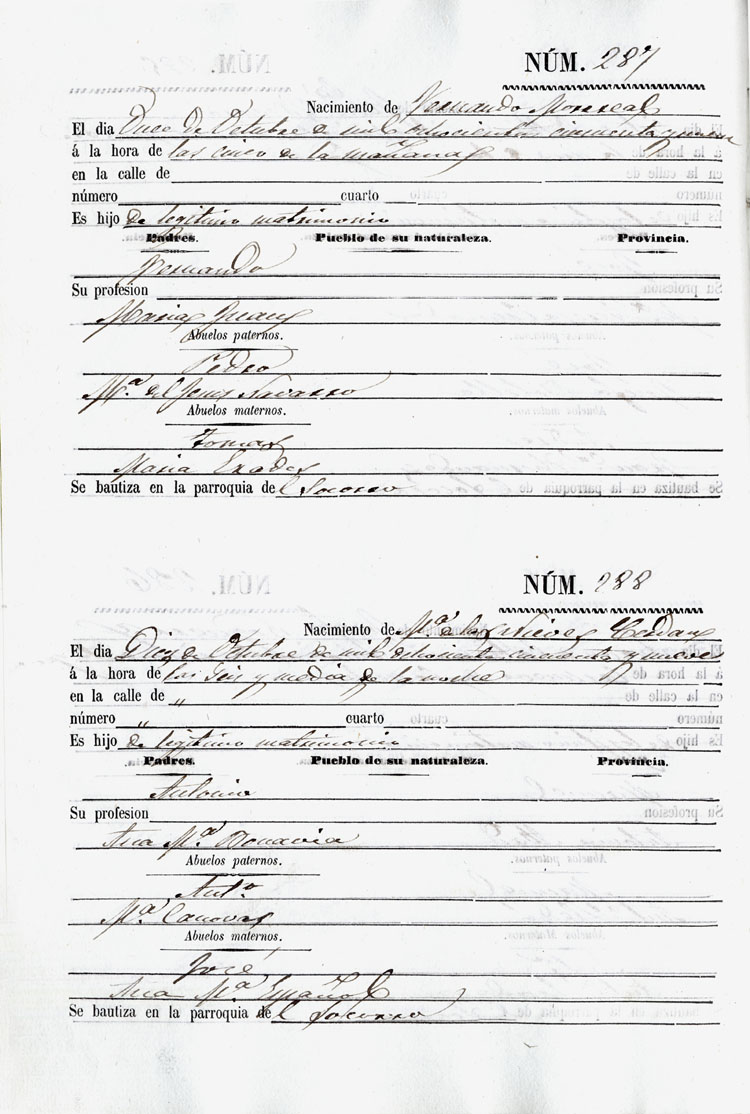 NÚM. 287
Nacimiento de Fernando Monreal
El dia Once de Octubre de mil ochocientos cincuenta y nueve
á la hora de las cinco de la mañana
en la calle de
número cuarto
Es hijo de legitimo matrimonio
Padres. Pueblo de su naturaleza. Provincia.
Fernando
Su profesion
Maria
Abuelos paternos.
Pedro
M.ª del Navarro
Abuelos maternos.
Tomas
Maria
Se bautiza en la parroquia del Socorro
NÚM. 288
Nacimiento de M.ª de las Nieves Cerdan
El dia Diez de Octubre de mil ochocientos cincuenta y nueve
á la hora de las seis y media de la noche
en la calle de "
número " cuarto
Es hijo de legitimo matrimonio
Padres. Pueblo de su naturaleza. Provincia.
Antonio
Su profesion
Ana M.ª Bonavia
Abuelos paternos.
Ant.º
M.ª Canovas
Abuelos maternos.
José
Ana M.ª Español
Se bautiza en la parroquia del Socorro